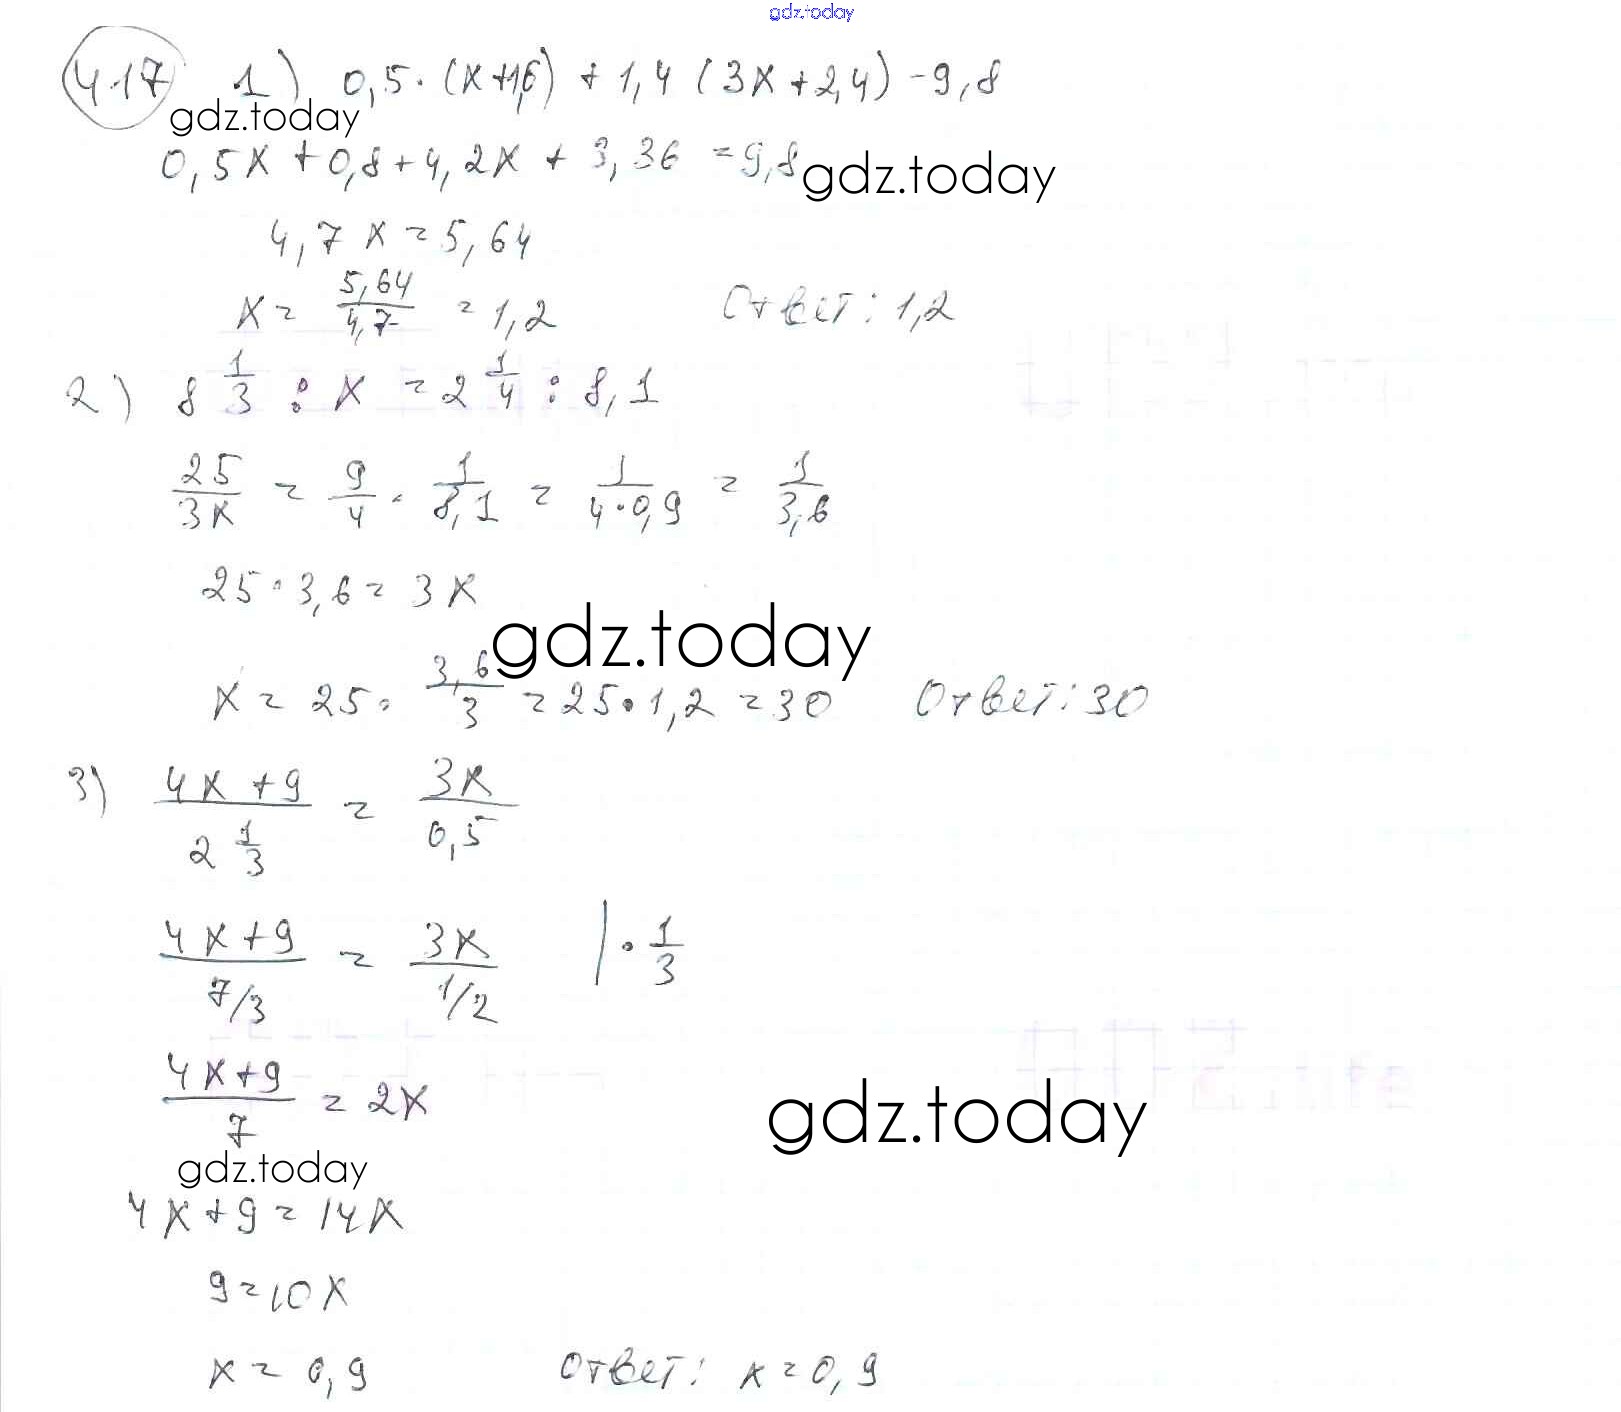 gdz.today
417 1) 0,5·(x+1,6) + 1,4 (3x+2,4) -9,8
gdz.today
0,5x+0,8+4,2x + 3,36 =9,8
gdz.today
4,7x=5,64
x= 5,64/4,7 =1,2 Ответ: 1,2
2) 8 1/3 : x = 2 1/4 : 8,1
25/3x = 9/4 · 1/8,1 = 1/4·0,9 = 1/3,6
25·3,6= 3x
gdz.today
x= 25· 3,6/3 =25·1,2 =30 Ответ: 30
3) 4x+9 / 2 1/3 = 3x / 0,5
4x+9 / 7/3 = 3x / 1/2 |· 1/3
4x+9 / 7 = 2x
gdz.today
gdz.today
4x+9=14x
9=10x
x= 0,9 Ответ: x=0,9